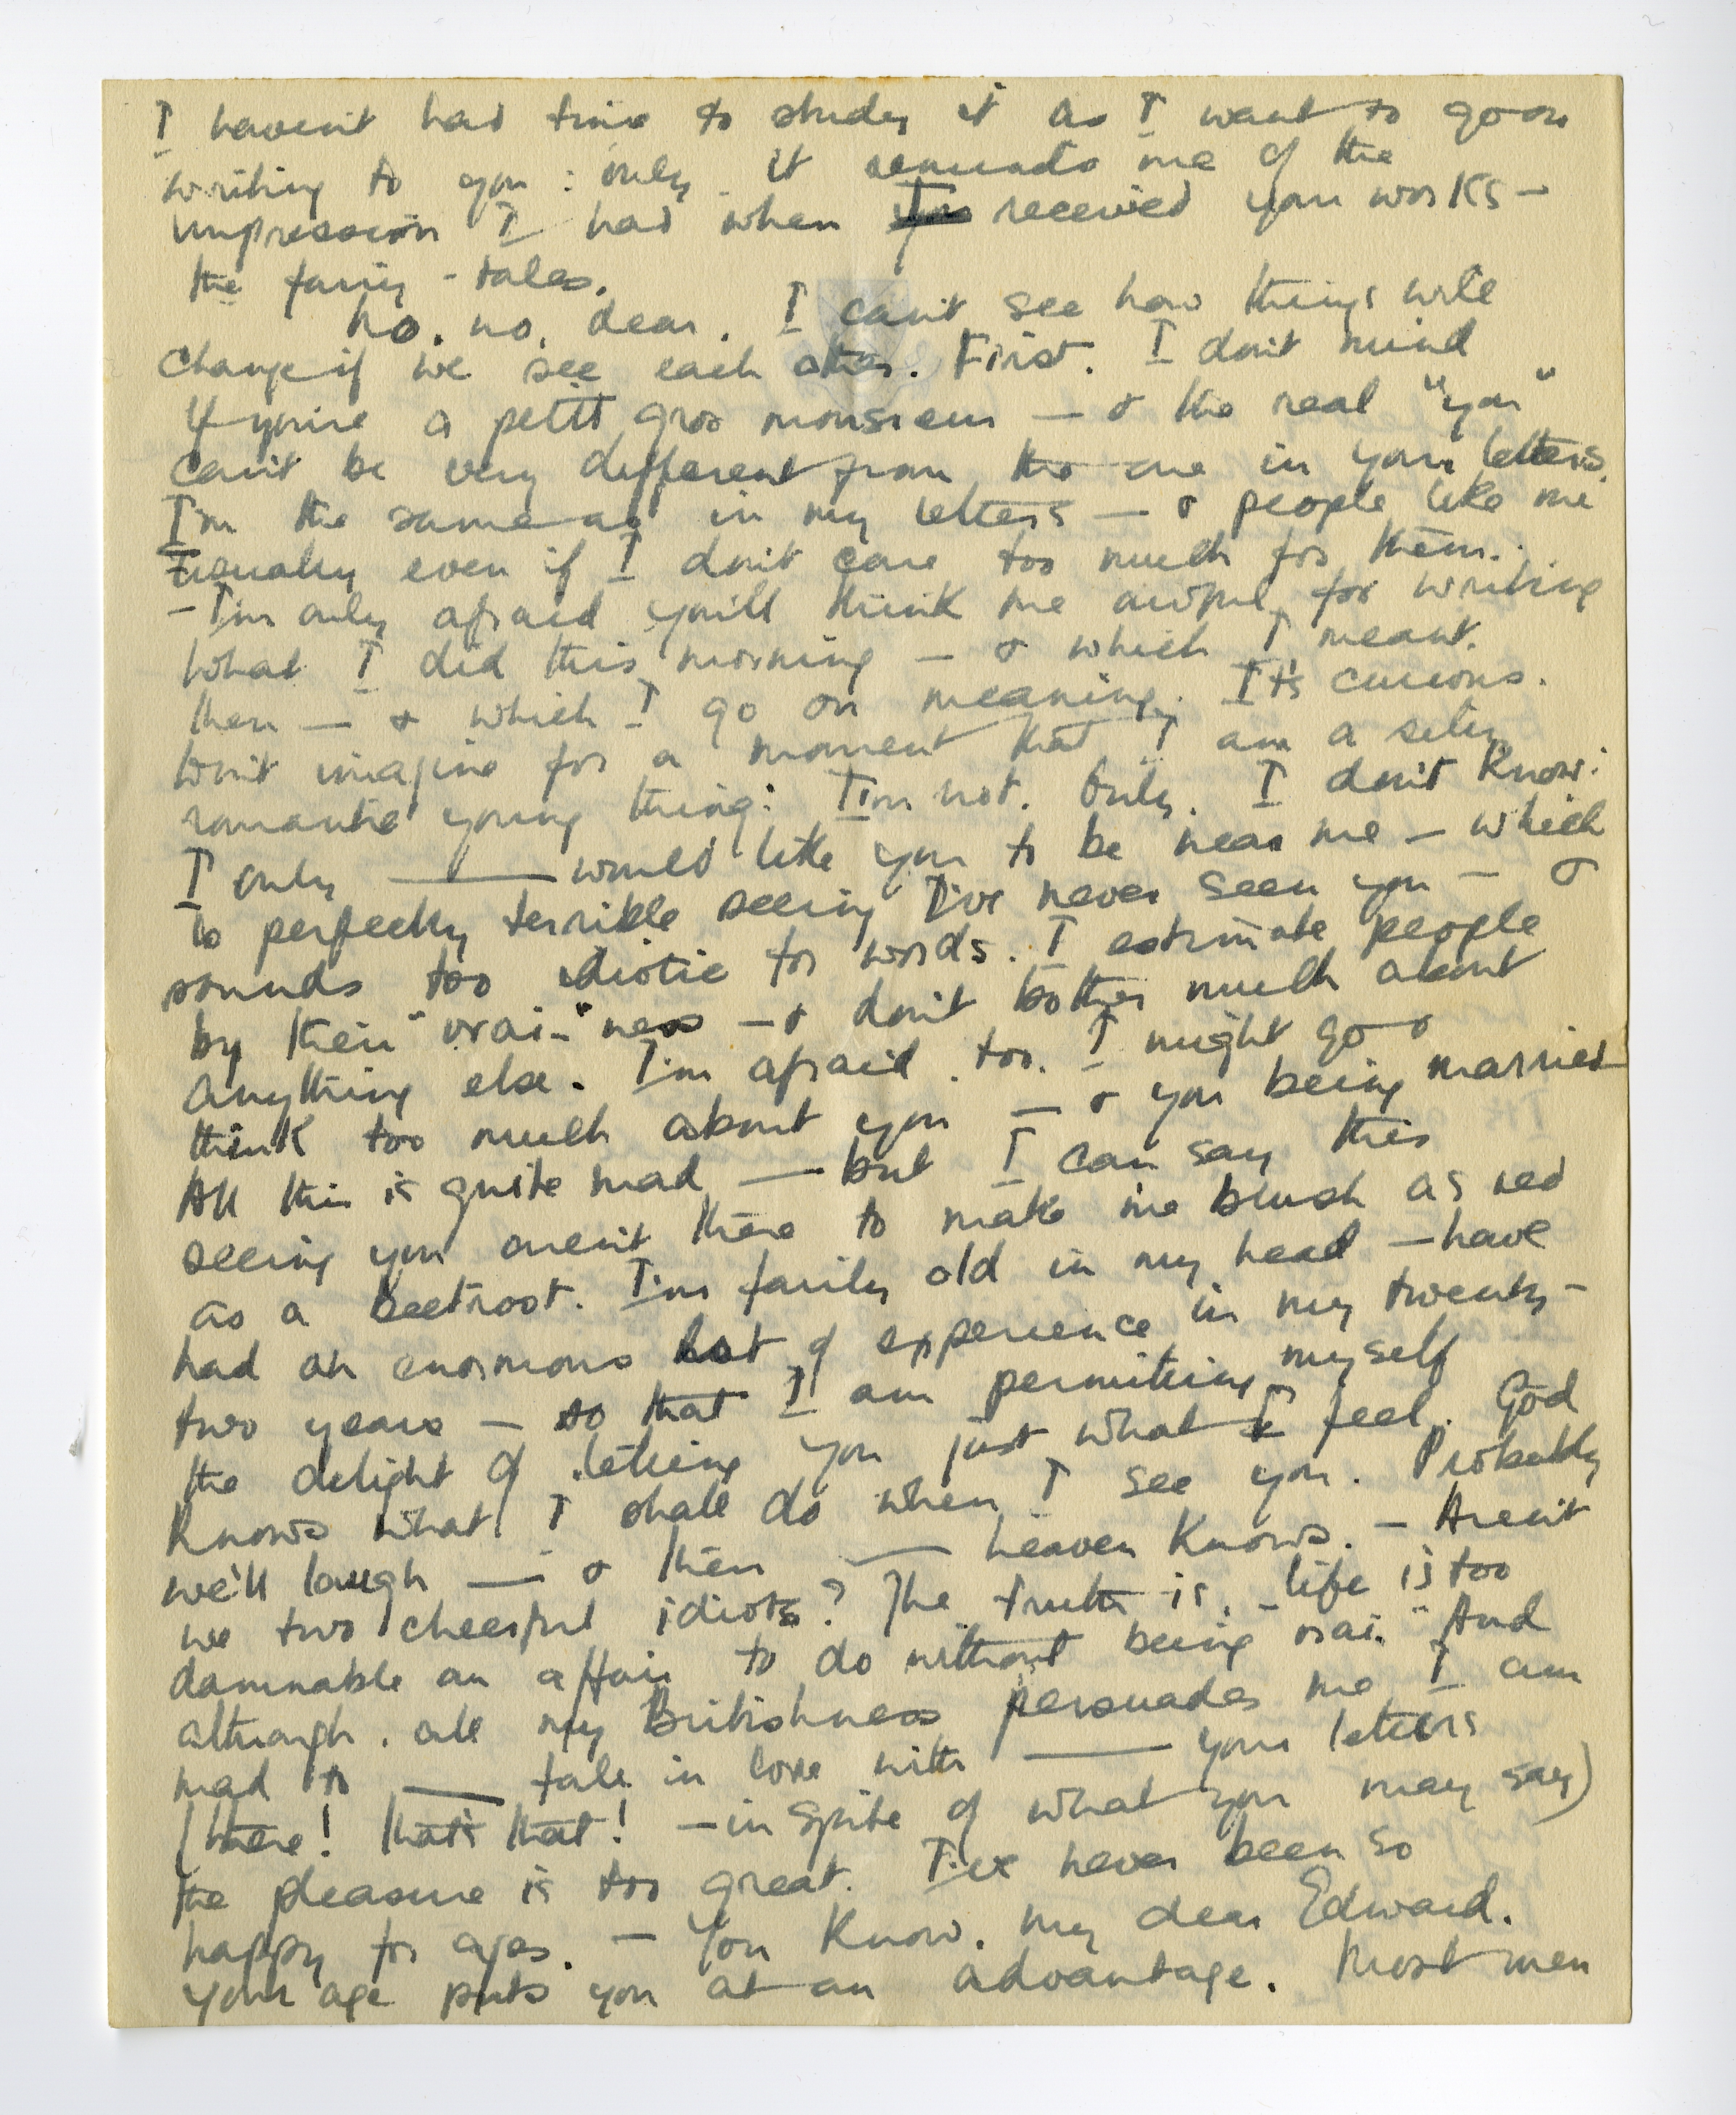 I haven't had time to study it as I want to go on
writing to you : only. it reminds me of the
impression I had when I received your works —
the fairy-tales.
No. no. dear. I can't see how things will
change if we see each other. First. I don't mind
if you're a petit gros monsieur — & the real "you"
can't be very different from the one in your letters.
I'm the same as in my letters — & people like me
usually even if I don't care too much for them.
— I'm only afraid you'll think me awful, for writing
what I did this morning — & which I meant.
then — & which I go on meaning. It's curious.
Don't imagine for a moment that I am a silly
romantic young thing: I'm not. Only. I don't know:
I only —— would like you to be near me — which
is perfectly terrible seeing I've never seen you — &
sounds too idiotic for words. I estimate people
by their "vrai-"ness — & don't bother much about
anything else. I'm afraid. too. I might go &
think too much about you — & you being married
All this is quite mad — but I can say this
seeing you aren't there to make me blush as red
as a beetroot. I'm fairly old in my head — have
had an enormous lot of experience in my twenty-
two years — so that I am permitting myself
the delight of letting you just what I feel. God
knows what I shall do when I see you. Probably
we'll laugh — & then —— heaven knows. — Aren't
we two cheerful idiots? The truth is, life is too
damnable an affair to do without being "vrai" And
although. all my Britishness persuades me I am
mad to —— fall in love with —— your letters
(there! that's that! — in spite of what you may say)
the pleasure is too great. I've never been so
happy for ages. — You know. my dear Edward.
your age puts you at an advantage. Most men